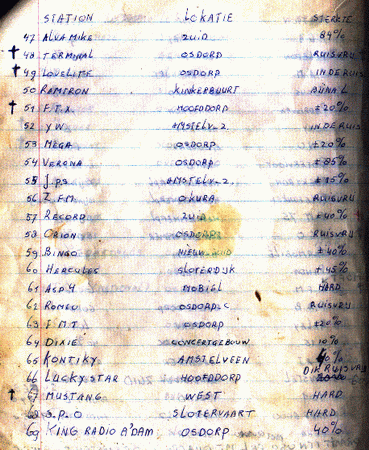 STATION LOKATIE STERKTE
47 ALVA MIKE ZUID 84%
48 TERMINAL OSDORP RUISVRIJ
49 LOVELITE OSDORP IN DE RUIS
50 RAMTRON KINKERBUURT
51 F.T.X. HOOFDDORP ±20%
52 YW AMSTELV-2. IN DE RUIS
53 MEGA OSDORP ±20%
54 VERONA OSDORP ±85%
55 J.P.S AMSTELV-2.
56 Z.F.M. OKURA RUISVRIJ
57 RECORD ZUID ±40%
58 ORION OSDORP RUISVRIJ
59 BINGO NIEUW ZUID ±40%
60 HERCULES SLOTERDIJK ±45%
61 MOBIEL HARD
62 ROMEO OSDORP RUISVRIJ
63 F.M.T OSDORP
64 DIXIE CONCERTGEBOUW 10%
65 KONTIKY AMSTELVEEN
66 LUCKY STAR HOOFDDORP RUISVRIJ
67 MUSTANG WEST HARD
68 S.P.O SLOTERVAART HARD
69 KING RADIO A'DAM OSDORP 40%